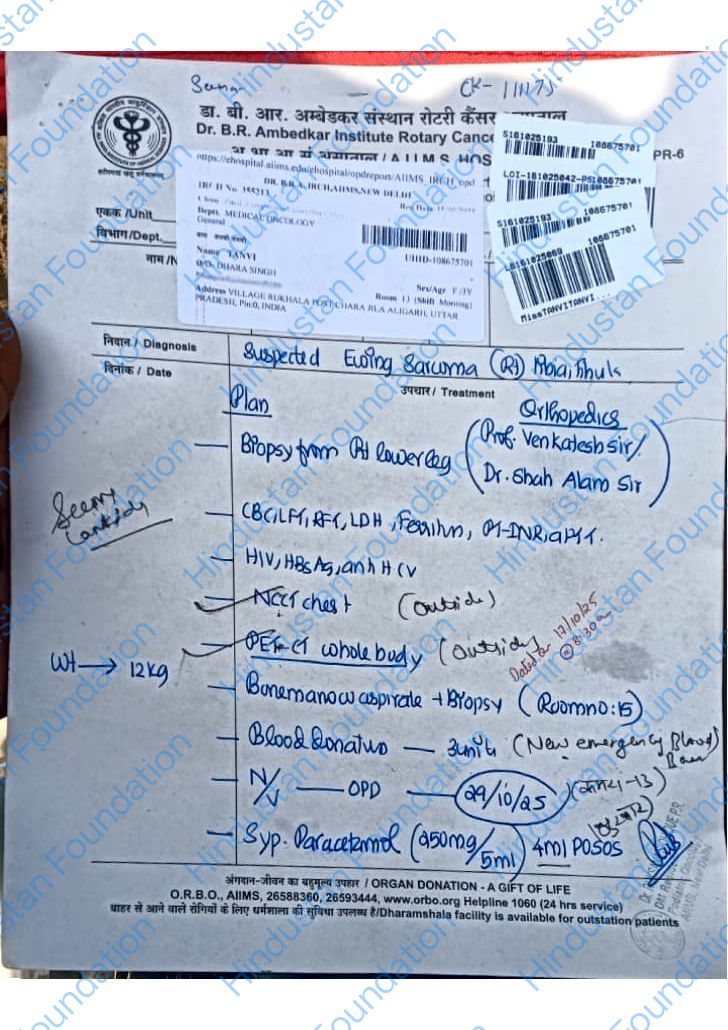 Hindustan Foundation
CK-111175
डा. बी. आर. अम्बेडकर संस्थान रोटरी कैंसर
Dr. B.R. Ambedkar Institute Rotary Cance
PR-6
S161025193 108675701
LOI-181025042-PS 108675701
S161025193 108675701
LB161025060 108675701
MissTANVITANVI...
https://ehospital.aiims.edu/ehospital/opdreport/AIIMS_IRCH_opd
DR. B.R.A. IRCH, AIIMS, NEW DELHI
Deptt. MEDICAL ONCOLOGY
General
UHID-108675701
Name TANVI
D/O DHARA SINGH
Sex/Age F/3Y
Room 13 (Shift Morning)
Address VILLAGE RUKHALA POST CHARA JILA ALIGARH, UTTAR
PRADESH, Pin:0, INDIA
एकक /Unit
विभाग/Dept.
नाम /N
निदान / Diagnosis
Suspected Ewing Sarcoma (Rt) tibia, fibula
दिनांक / Date
उपचार / Treatment
Plan
Orthopedics
— Biopsy from Rt lower leg (Prof. Venkatesh Sir/
Dr. Shah Alam Sir)
— CBC, LFT, RFT, LDH, Ferritin, PT-INR, aPTT.
— HIV, HBsAg, anti HCV
— NCCT chest (outside)
— PET-CT whole body (outside)
Dated on 17/10/25
@ 8:30am
Wt → 12kg
— Bonemarrow aspirate + Biopsy (Room no: 15)
— Blood donation — 3 unit (New emergency Blood
Bank)
— N/V — OPD — 29/10/25
— Syp. Paracetamol (250mg/5ml) 4ml PO SOS
अंगदान-जीवन का बहुमूल्य उपहार / ORGAN DONATION - A GIFT OF LIFE
O.R.B.O., AIIMS, 26588360, 26593444, www.orbo.org Helpline 1060 (24 hrs service)
बाहर से आने वाले रोगियों के लिए धर्मशाला की सुविधा उपलब्ध है/Dharamshala facility is available for outstation patients